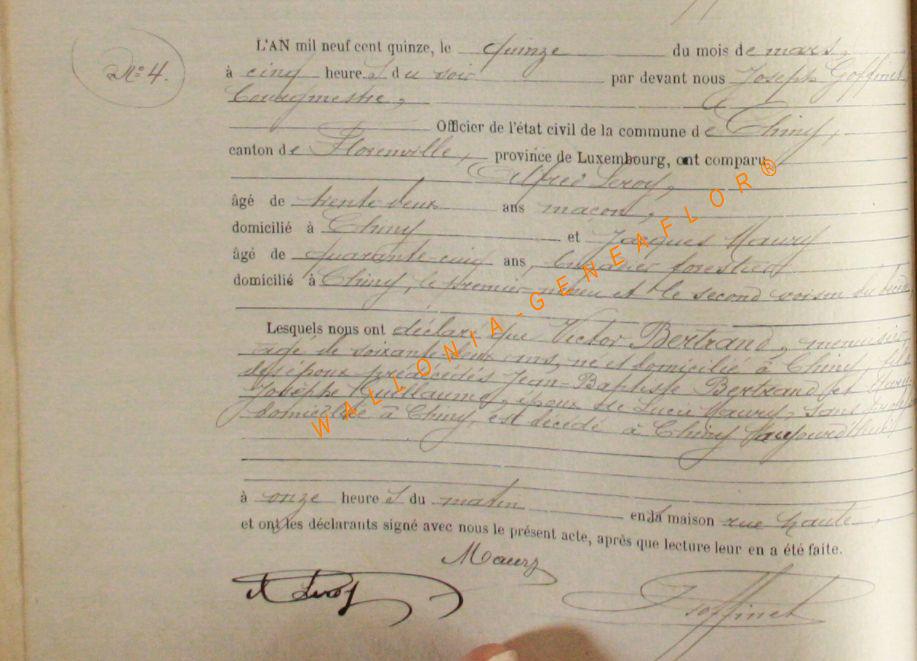 N° 4.
L'AN mil neuf cent quinze, le quinze du mois de mars,
à cinq heures du soir par devant nous Joseph Goffinet
bourgmestre,
Officier de l'état civil de la commune de Chiny,
canton de Florenville, province de Luxembourg, ont comparu
Alfred Leroy,
âgé de trente deux ans maçon,
domicilié à Chiny et Jacques Maury
âgé de quarante-cinq ans, brigadier forestier
domicilié à Chiny, le premier neveu et le second voisin du
Lesquels nous ont déclaré que Victor Bertrand, menuisier
âgé de soixante deux ans, né et domicilié à Chiny, fils
des époux prédécédés Jean-Baptiste Bertrand et
Josèphe Guillaume, époux de Lucie Maury, sans
domiciliée à Chiny, est décédé à Chiny aujourd'hui
à onze heures du matin en la maison rue haute.
et ont les déclarants signé avec nous le présent acte, après que lecture leur en a été faite.
Maury
A Leroy J Goffinet
WALLONIA-GENEAFLOR®